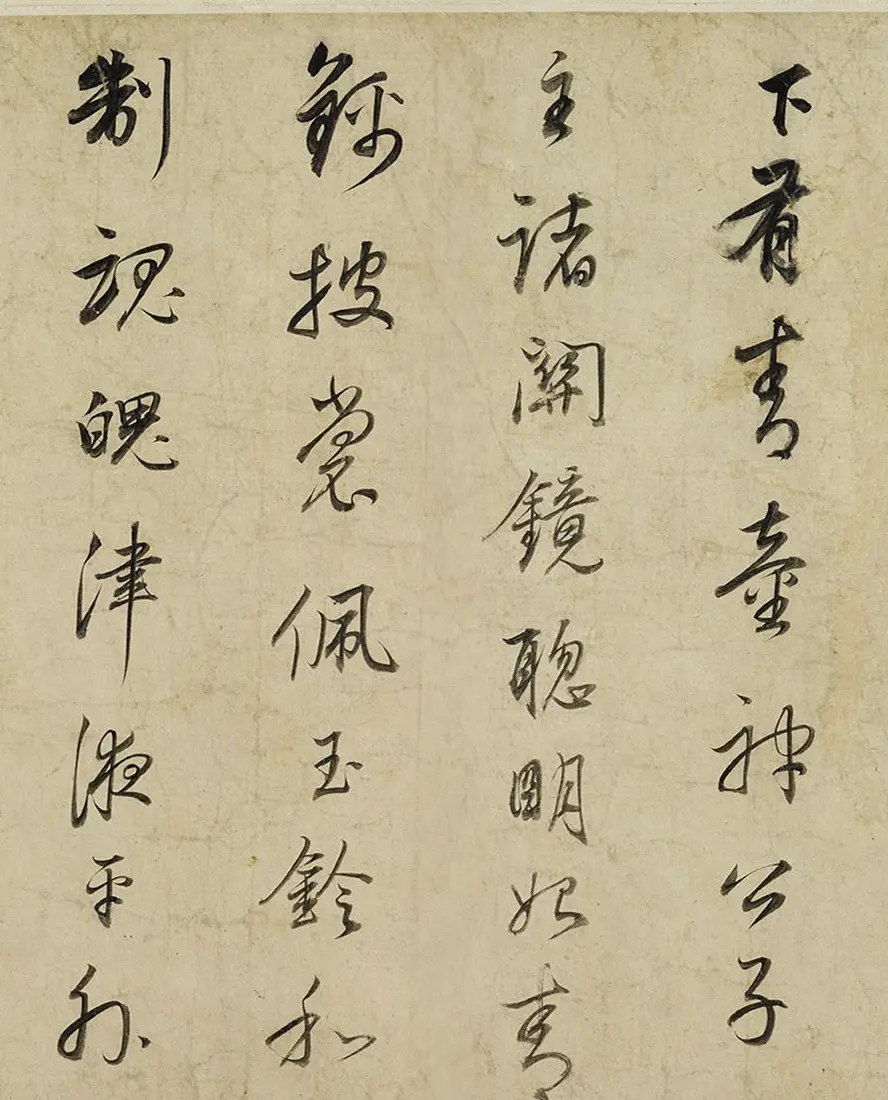 下有青童神公子
主諸關鏡聰明始青
錦披裳佩玉鈴和
制魂魄津液平外